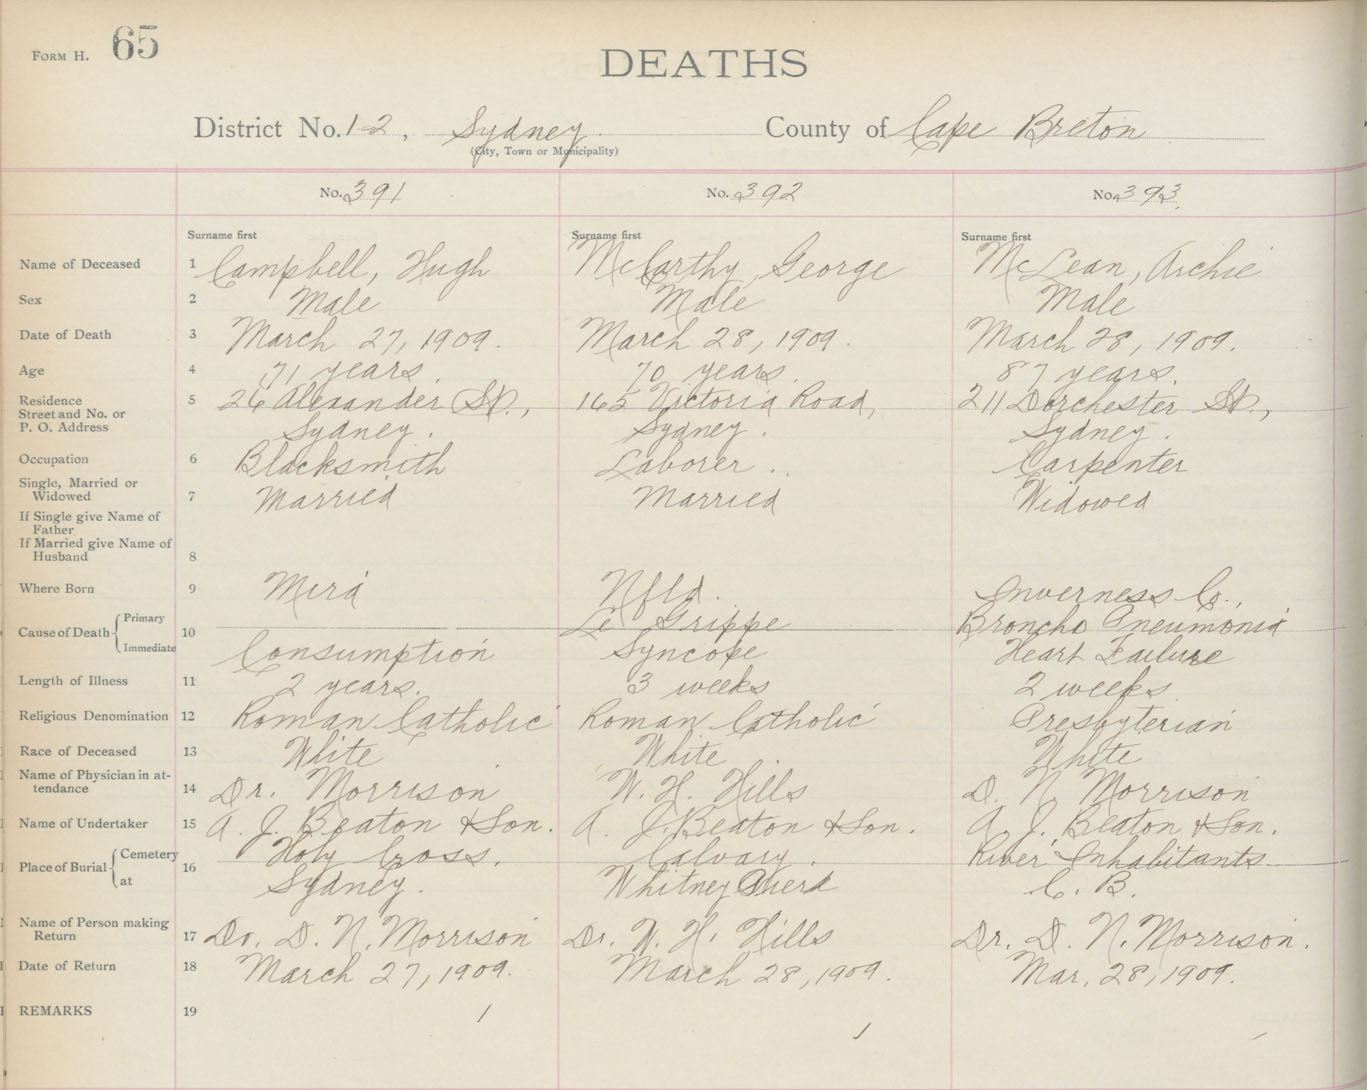 FORM H. 65
DEATHS
District No. 12, Sydney County of Cape Breton
(City, Town or Municipality)
No. 391 No. 392 No. 393
Surname first Surname first Surname first
Name of Deceased 1 Campbell, Hugh McCarthy, George McLean, Archie
Sex 2 Male Male Male
Date of Death 3 March 27, 1909. March 28, 1909. March 28, 1909.
Age 4 71 years. 70 years. 87 years.
Residence 5 26 Alexander St., 165 Victoria Road, 211 Dorchester St.,
Street and No. or
P. O. Address Sydney. Sydney. Sydney.
Occupation 6 Blacksmith Laborer.. Carpenter
Single, Married or
Widowed 7 Married Married Widowed
If Single give Name of
Father
If Married give Name of
Husband 8
Where Born 9 Mira Nfld. Inverness Co.,
Cause of Death 10 Primary Le Grippe Broncho Pneumonia
Immediate Consumption Syncope Heart Failure
Length of Illness 11 2 years. 3 weeks 2 weeks
Religious Denomination 12 Roman Catholic Roman Catholic Presbyterian
Race of Deceased 13 White White White
Name of Physician in at-
tendance 14 Dr. Morrison W. H. Hills D. N Morrison
Name of Undertaker 15 A. J. Beaton & Son. A. J. Beaton & Son. A J. Beaton & Son.
Place of Burial 16 Cemetery Holy Cross. Calvary. River Inhabitants
at Sydney. Whitney Pierd C. B.
Name of Person making
Return 17 Dr. D. N. Morrison Dr. W. H. Hills Dr. D. N. Morrison.
Date of Return 18 March 27, 1909. March 28, 1909. Mar. 28, 1909.
REMARKS 19 1
1